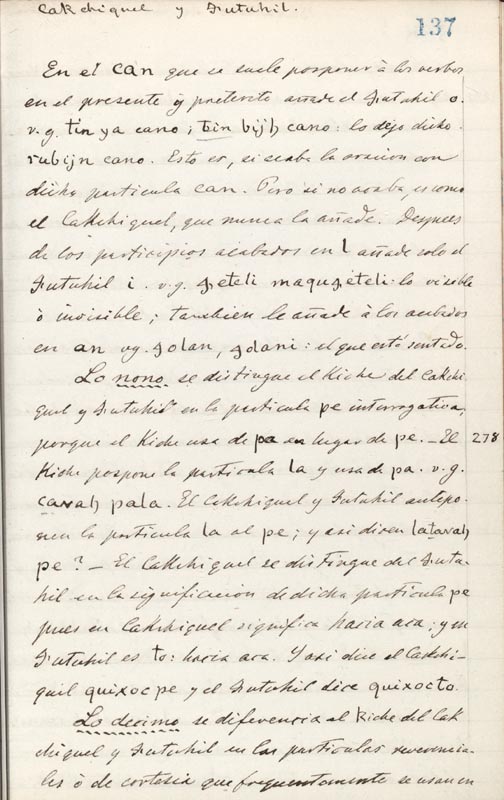 Cakchiquel y Zutuhil.
137
En el can que se suele posponer à los verbos
en el presente y preterito añade el Zutuhil o.
v.g. tin ya cano; tin bijh cano: lo dejo dicho.
rubijn cano. Esto es, si acaba la oracion con
dicha particula can. Pero si no acaba, es como
el Cakchiquel, que nunca la añade. Despues
de los participios acabados en l añade solo el
Zutuhil i. v.g. ꜫeteli maquꜫeteli: lo visible
ò invisible; tambien le añade à los acabados
en an vg. ꜫolan, ꜫolani: el que está sentado.
Lo nono se distingue el Kiche del Cakchi-
quel y Zutuhil en la particula pe interrogativa,
porque el Kiche usa de pa en lugar de pe. — El 278
Kiche pospone la particula la y usa de pa. v.g.
cavah pala. El Cakchiquel y Zutuhil antepo-
nen la particula la al pe; y asi dicen latavah
pe? — El Cakchiquel se distingue del Zutu-
hil en la significacion de dicha particula pe
pues en Cakchiquel significa hacia aca; y en
Zutuhil es to: hacia aca. Y asi dice el Cakchi-
quil quixocpe y el Zutuhil dice quixocto.
Lo decimo se diferencia el Kiche del Cak
chiquel y Zutuhil en las particulas reverencia-
les ò de cortesia que frequentemente se usan en